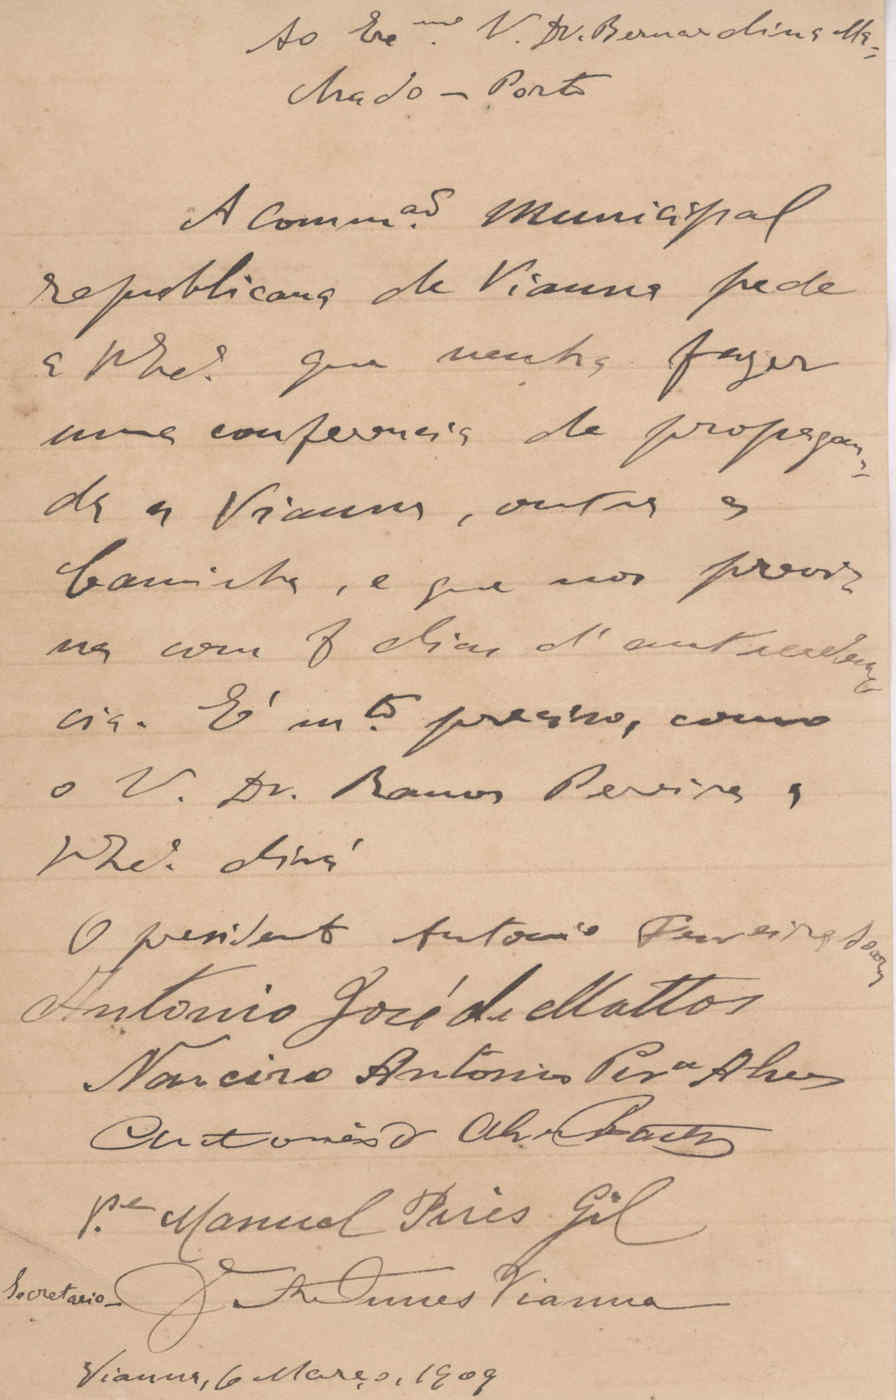 Ao Exmo. V. Dr. Bernardino Ma-
chado - Porto
A Commão. Municipal
republicana de Vianna pede
a V. Exa. que venha fazer
uma conferencia de propagan-
da a Vianna, outra a
Caminha, e que nos previ-
na com 8 dias d'antecedên-
cia. É mto. preciso, como
o V. Dr. Ramos Pereira a
V. Exa. dirá
O presidente Antonio Ferreira Soares
Antonio José de Mattos
Narciso Antonio Pera Alves
Antonio Alves
P.e Manuel Pires Gil
Secretario - Nunes Vianna
Vianna, 6 Março, 1909